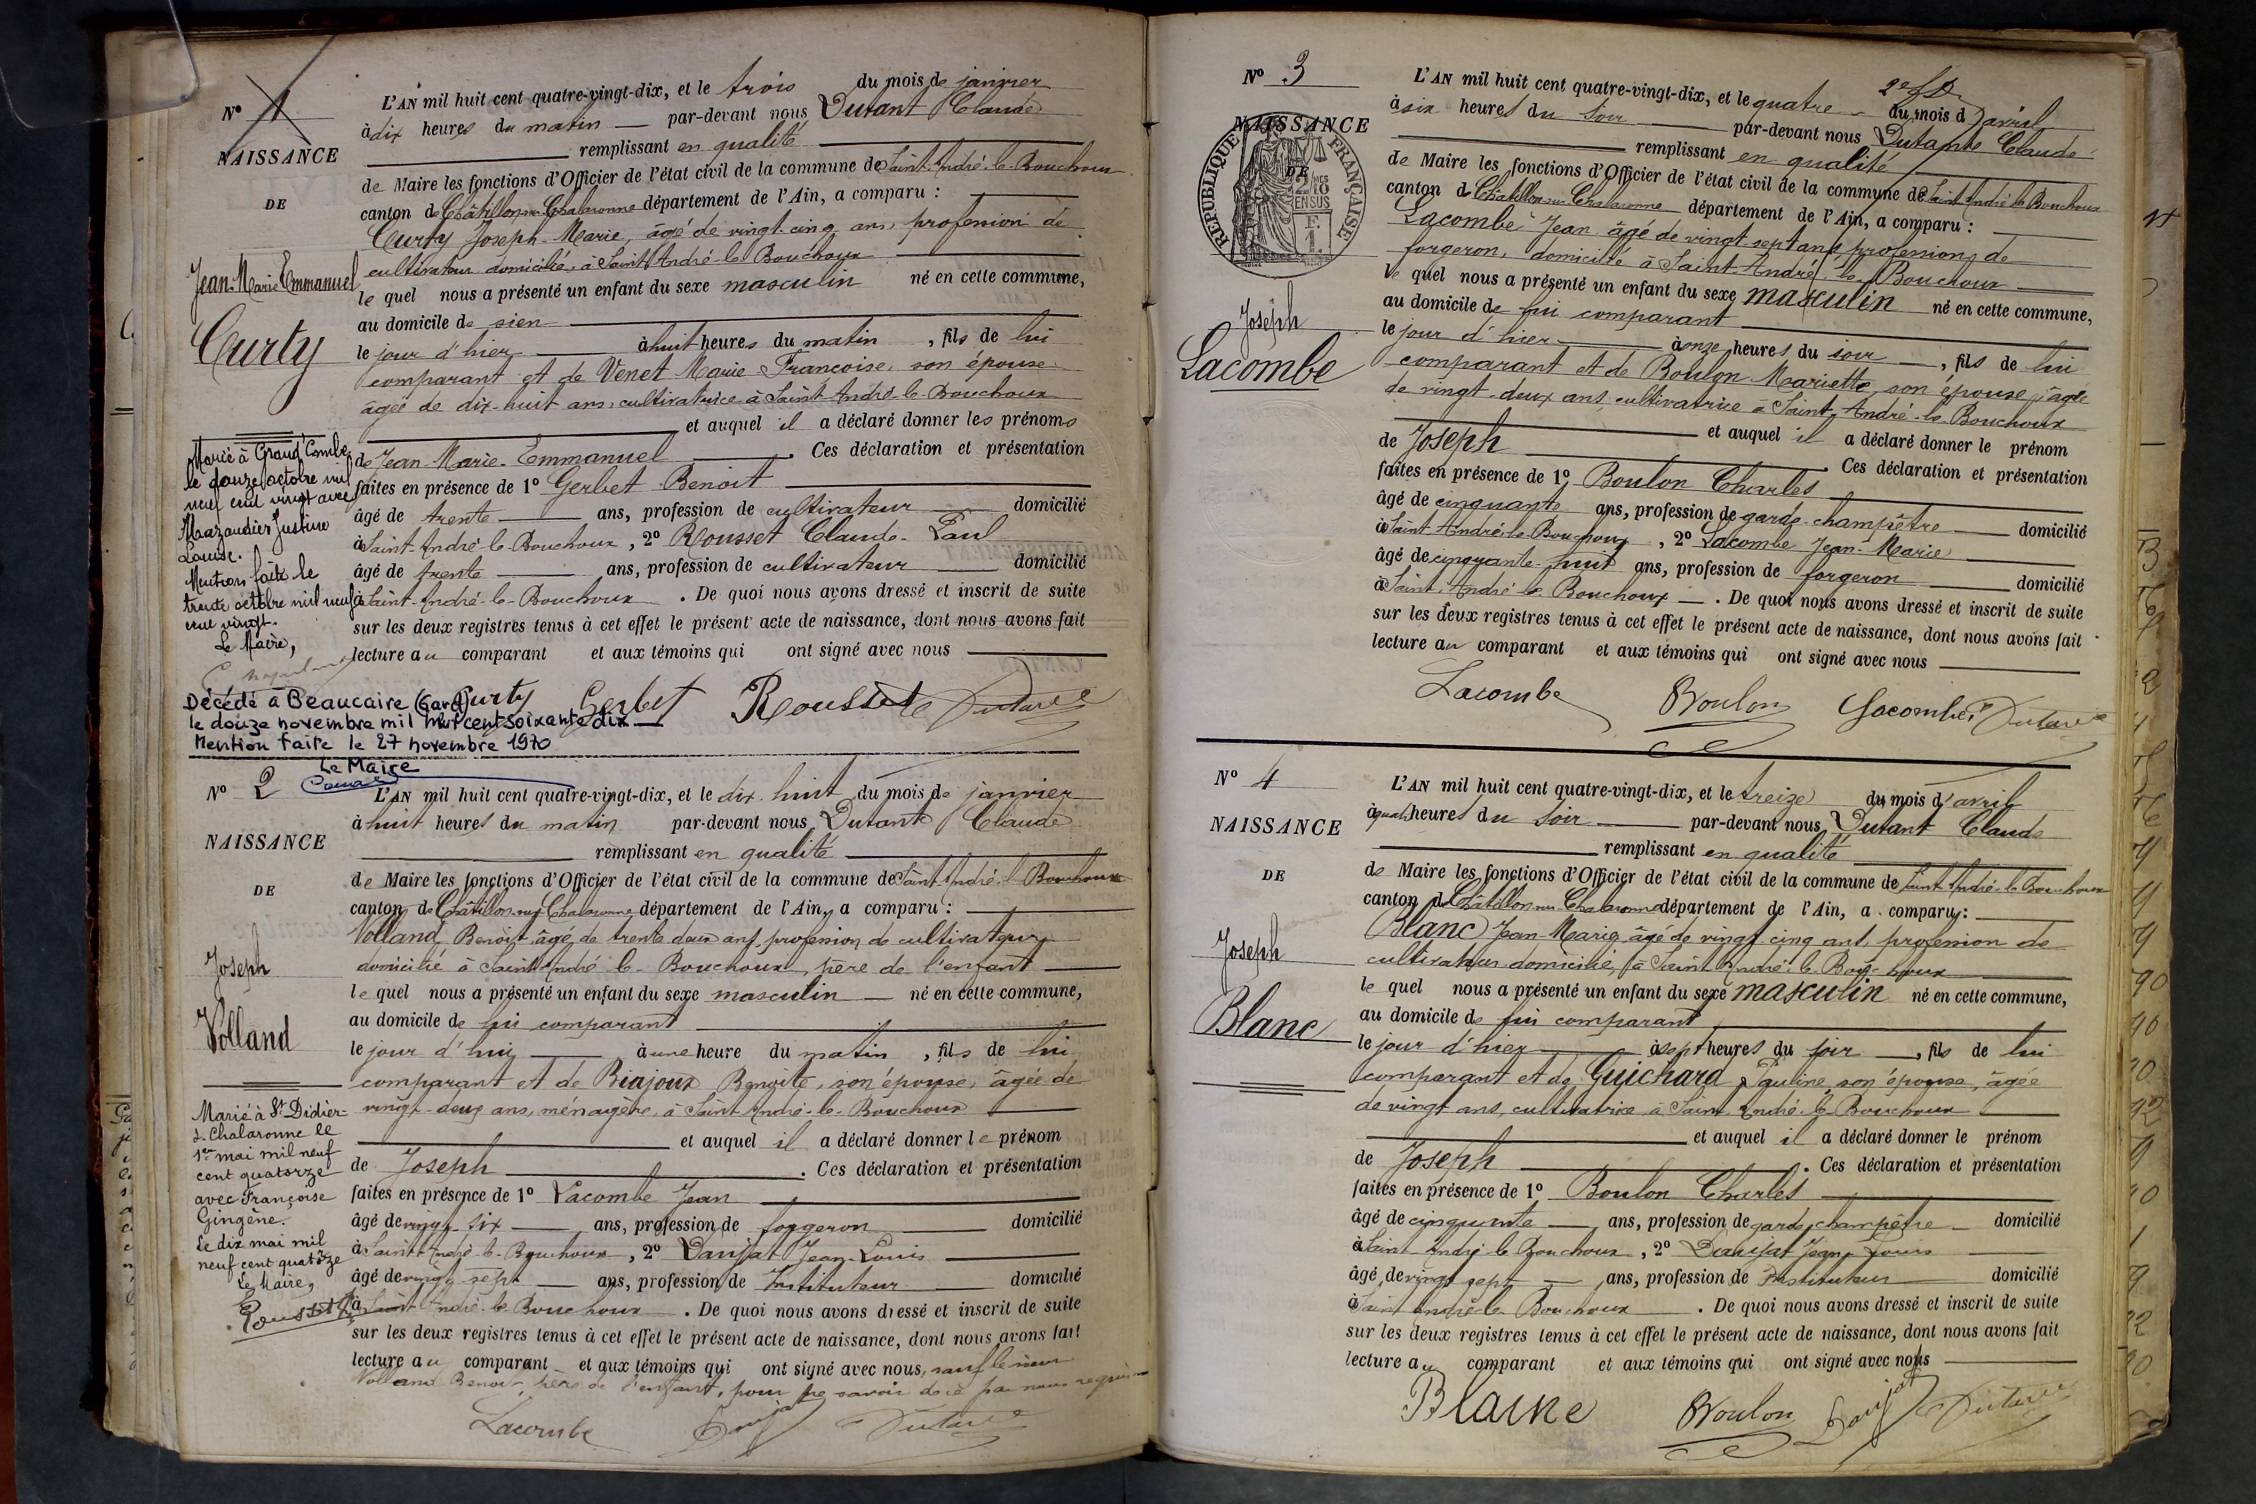 N° 1
NAISSANCE
DE
Jean-Marie Emmanuel
Curty
Marié à Grand'Combe
le douze octobre mil
neuf cent vingt avec
Mazaudier Justine
Louise.
Mention faite le
trente octobre mil neuf
cent vingt.
Le Maire,
L'AN mil huit cent quatre-vingt-dix, et le trois du mois de janvier
à dix heures du matin par-devant nous Dutant Claude
remplissant en qualité
de Maire les fonctions d'Officier de l'état civil de la commune de Saint-André-le-Bouchoux
canton de Châtillon-sur-Chalaronne département de l'Ain, a comparu :
Curty Joseph-Marie, âgé de vingt-cinq ans, profession de
cultivateur domicilié, à Saint-André-le-Bouchoux
le quel nous a présenté un enfant du sexe masculin né en cette commune,
au domicile de sien
le jour d'hier à huit heures du matin, fils de lui
comparant et de Venet Marie Françoise, son épouse
âgée de dix-huit ans, cultivatrice à Saint-André-le-Bouchoux
et auquel il a déclaré donner les prénoms
de Jean-Marie-Emmanuel. Ces déclaration et présentation
faites en présence de 1° Gerbet Benoit
âgé de trente ans, profession de cultivateur domicilié
à Saint-André-le-Bouchoux, 2° Rousset Claude-Paul
âgé de trente ans, profession de cultivateur domicilié
à Saint-André-le-Bouchoux. De quoi nous avons dressé et inscrit de suite
sur les deux registres tenus à cet effet le présent acte de naissance, dont nous avons fait
lecture au comparant et aux témoins qui ont signé avec nous
Curty Gerbet Rousset
Décédé à Beaucaire (Gard)
le douze novembre mil neuf cent soixante dix
Mention faite le 27 novembre 1970
Le Maire
N° 2
NAISSANCE
DE
Joseph
Volland
Marié à St Didier-
s. Chalaronne le
1er mai mil neuf
cent quatorze
avec Françoise
Gingène.
Le dix mai mil
neuf cent quatorze
Le Maire,
Rousset
L'AN mil huit cent quatre-vingt-dix, et le dix-huit du mois de janvier
à huit heures du matin par-devant nous Dutant Claude
remplissant en qualité
de Maire les fonctions d'Officier de l'état civil de la commune de Saint-André-le-Bouchoux
canton de Châtillon-sur-Chalaronne département de l'Ain, a comparu :
Volland Benoit âgé de trente deux ans, profession de cultivateur
domicilié à Saint-André-le-Bouchoux, père de l'enfant
le quel nous a présenté un enfant du sexe masculin né en cette commune,
au domicile de lui comparant
le jour d'hui à une heure du matin, fils de lui
comparant et de Biajoux Benoite, son épouse, âgée de
vingt-deux ans, ménagère, à Saint-André-le-Bouchoux
et auquel il a déclaré donner le prénom
de Joseph. Ces déclaration et présentation
faites en présence de 1° Lacombe Jean
âgé de vingt-six ans, profession de forgeron domicilié
à Saint-André-le-Bouchoux, 2° Danjat Jean-Louis
âgé de vingt-sept ans, profession de Instituteur domicilié
à Saint-André-le-Bouchoux. De quoi nous avons dressé et inscrit de suite
sur les deux registres tenus à cet effet le présent acte de naissance, dont nous avons fait
lecture au comparant et aux témoins qui ont signé avec nous, sauf le sieur
Volland Benoit, père de l'enfant, pour ne savoir de ce par nous requis
Lacombe Danjat
N° 3
NAISSANCE
DE
RÉPUBLIQUE FRANÇAISE
Joseph
Lacombe
L'AN mil huit cent quatre-vingt-dix, et le quatre du mois d'avril
à six heures du soir par-devant nous Dutant Claude
remplissant en qualité
de Maire les fonctions d'Officier de l'état civil de la commune de Saint-André-le-Bouchoux
canton de Châtillon-sur-Chalaronne département de l'Ain, a comparu :
Lacombe Jean âgé de vingt sept ans, profession de
forgeron, domicilié à Saint-André-le-Bouchoux
le quel nous a présenté un enfant du sexe masculin né en cette commune,
au domicile de lui comparant
le jour d'hier à onze heures du soir, fils de lui
comparant et de Boulon Mariette, son épouse, âgée
de vingt-deux ans, cultivatrice à Saint-André-le-Bouchoux
et auquel il a déclaré donner le prénom
de Joseph. Ces déclaration et présentation
faites en présence de 1° Boulon Charles
âgé de cinquante ans, profession de garde-champêtre domicilié
à Saint-André-le-Bouchoux, 2° Lacombe Jean-Marie
âgé de cinquante-huit ans, profession de forgeron domicilié
à Saint-André-le-Bouchoux. De quoi nous avons dressé et inscrit de suite
sur les deux registres tenus à cet effet le présent acte de naissance, dont nous avons fait
lecture au comparant et aux témoins qui ont signé avec nous
Lacombe Boulon Lacombe
N° 4
NAISSANCE
DE
Joseph
Blanc
L'AN mil huit cent quatre-vingt-dix, et le treize du mois d'avril
à quatre heures du soir par-devant nous Dutant Claude
remplissant en qualité
de Maire les fonctions d'Officier de l'état civil de la commune de Saint-André-le-Bouchoux
canton de Châtillon-sur-Chalaronne département de l'Ain, a comparu :
Blanc Jean-Marie âgé de vingt cinq ans, profession de
cultivateur domicilié, à Saint-André-le-Bouchoux
le quel nous a présenté un enfant du sexe masculin né en cette commune,
au domicile de lui comparant
le jour d'hier à sept heures du soir, fils de lui
comparant et de Guichard Pauline, son épouse, âgée
de vingt ans, cultivatrice à Saint-André-le-Bouchoux
et auquel il a déclaré donner le prénom
de Joseph. Ces déclaration et présentation
faites en présence de 1° Boulon Charles
âgé de cinquante ans, profession de garde-champêtre domicilié
à Saint-André-le-Bouchoux, 2° Danjat Jean-Louis
âgé de vingt sept ans, profession de Instituteur domicilié
à Saint-André-le-Bouchoux. De quoi nous avons dressé et inscrit de suite
sur les deux registres tenus à cet effet le présent acte de naissance, dont nous avons fait
lecture au comparant et aux témoins qui ont signé avec nous
Blanc Boulon Danjat